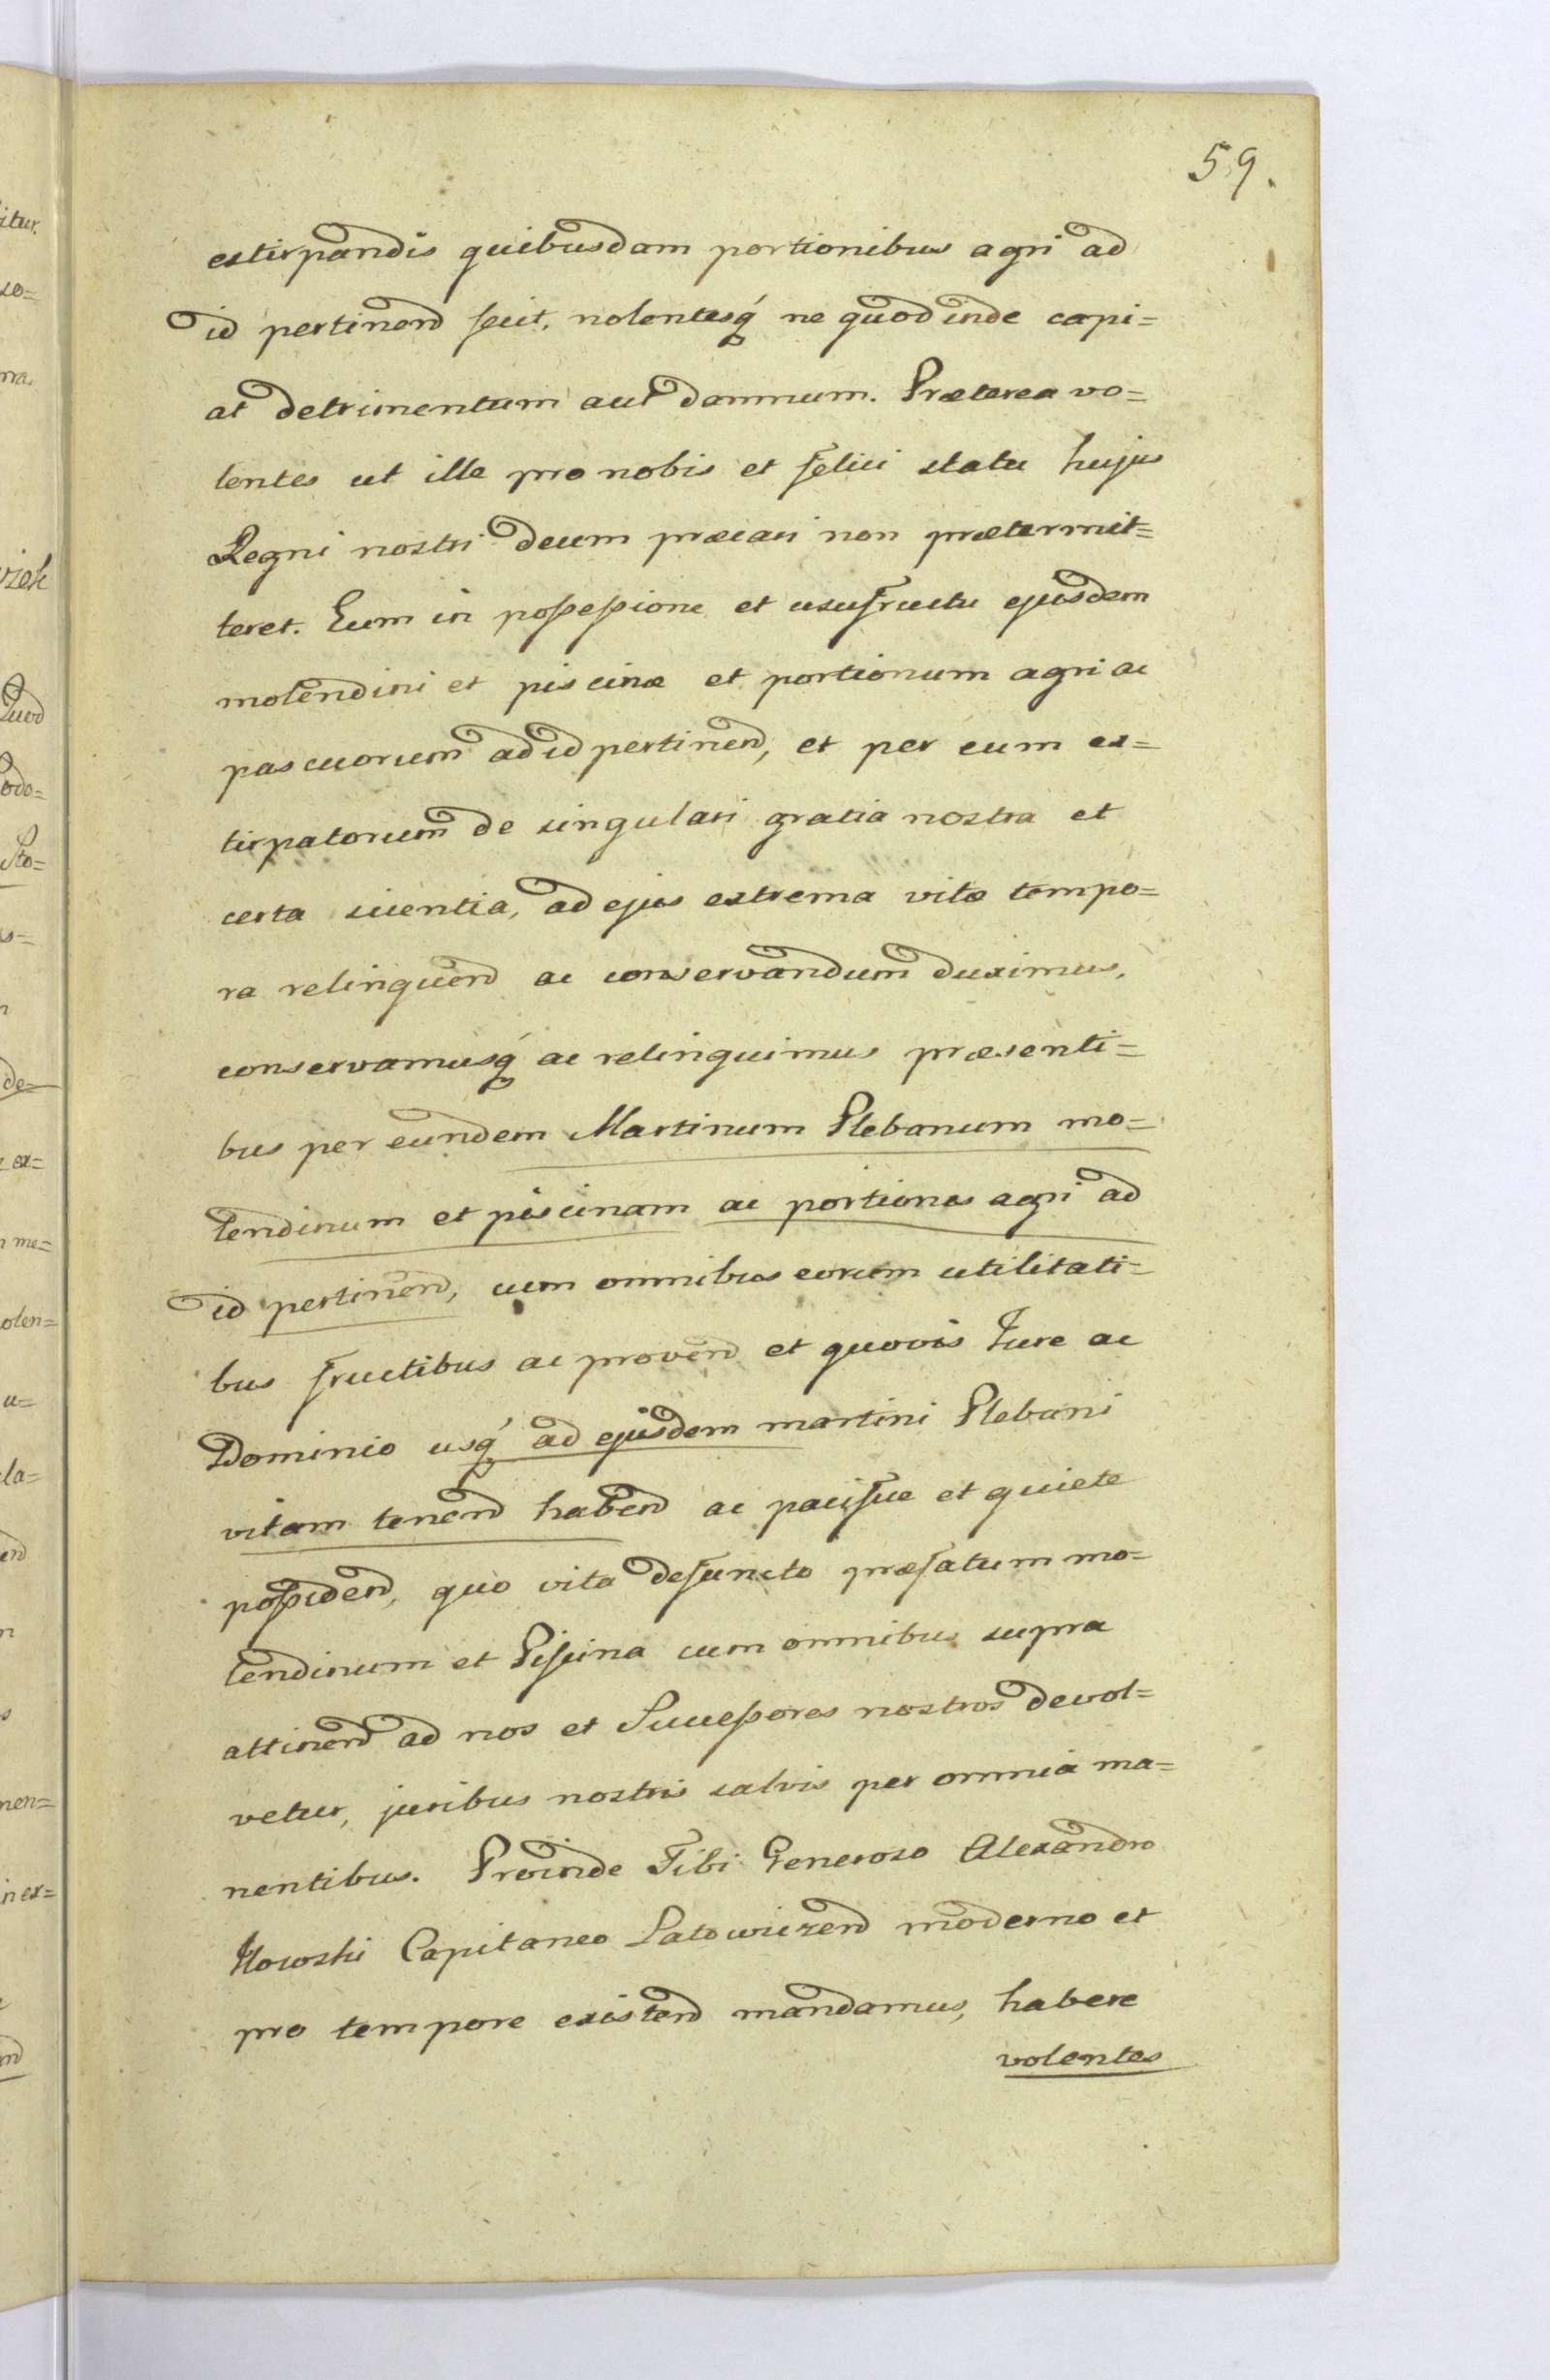 59.
extirpandis quibusdam portionibus agri ad
id pertinend fecit, nolentesq́ ne quod inde capi=
at detrimentum aut damnum. Præterea vo=
lentes ut ille pro nobis et felici statu hujus
Regni nostri deum præcari non prætermit=
teret. Eum in possessione et usufructu ejusdem
molendini et piscinæ et portionum agri ac
pascuorum ad id pertinend, et per eum ex=
tirpatorum de singulari gratia nostra et
certa scientia, ad ejus extrema vitæ tempo=
ra relinquend ac conservandum duximus,
conservamusq́ ac relinquimus præsenti=
bus per eundem Martinum Plebanum mo=
lendinum et piscinam ac portiones agri ad
id pertinend, cum omnibus eorum utilitati=
bus fructibus ac provend et quovis Jure ac
Dominio usq́ ad ejusdem martini Plebani
vitam tenend habend ac pacifice et quiete
possidend, quo vita defuncto præfatum mo=
lendinum et Piscina cum omnibus supra
attinend ad nos et Successores nostros devol=
vetur, juribus nostris salvis per omnia ma=
nentibus. Proinde Tibi Generoso Alexandro
Ilowski Capitaneo Latowiczend moderno et
pro tempore existend mandamus, habere
volentes
itur.
ro=
rra.
Quod
odo=
Sto=
s=
n
de=
ex=
me=
olen=
u=
la=
end
n
s
nen=
in ex=